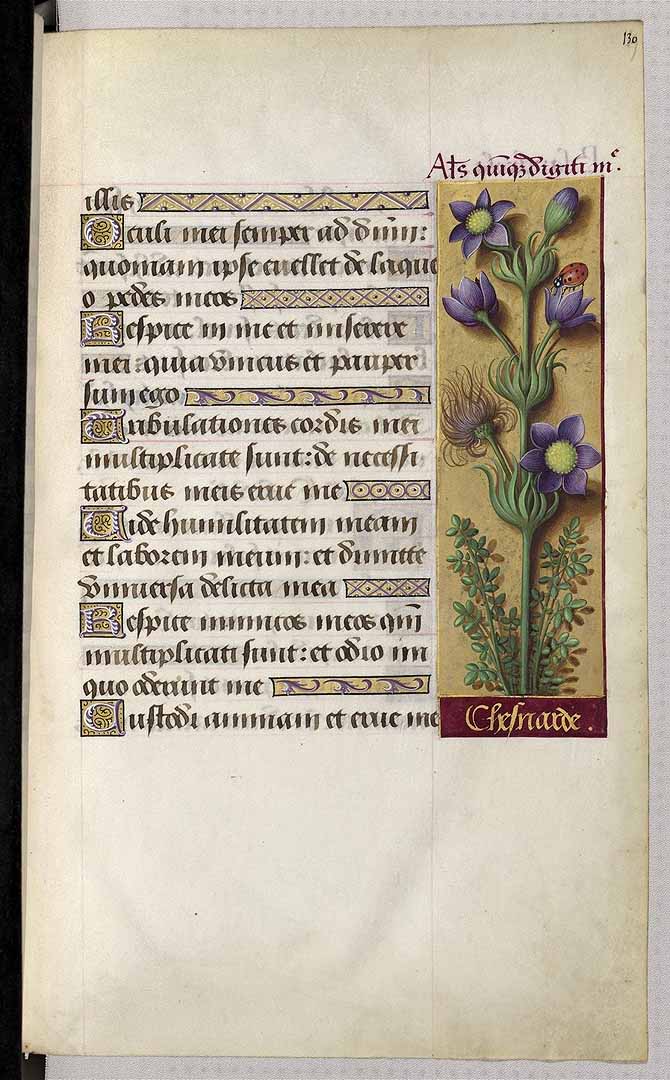 139
illis
Oculi mei semper ad dn̄m:
quoniam ipse euellet de laque
o pedes meos
Respice in me et miserere
mei: quia vnicus et pauper
sum ego
Tribulationes cordis mei
multiplicate sunt: de necessi
tatibus meis erue me
Vide humilitatem meam
et laborem meum: et dimitte
vniuersa delicta mea
Respice inimicos meos qm̄
multiplicati sunt: et odio ini
quo oderunt me
Custodi animam et erue me
Chesnarde.